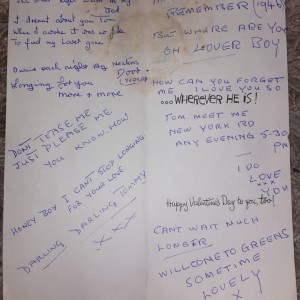 I dreamt about you Tom
When I woke it was so late
To find my Lover gone
Longing for you
more + more
DONT TEASE ME
JUST PLEASE ME
YOU KNOW HOW
HONEY BOY I CANT STOP LONGING
FOR YOUR LOVE
DARLING DARLING TOMMY
XXX
REMEMBER (1946)
BUT WHERE ARE YOU
OH LOVER BOY
HOW CAN YOU FORGET
ME I LOVE YOU SO
...WHEREVER HE IS!
TOM MEET ME
NEW YORK RD
ANY EVENING 5-30
PM
I DO
LOVE
YOU
XXX
Happy Valentine's Day to you, too!
CANT WAIT MUCH
LONGER
WILL COME TO GREENS
SOMETIME
LOVELY
X